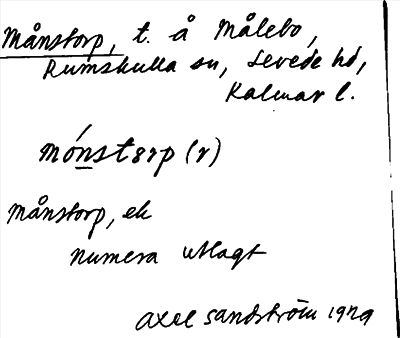 Månstorp, t. å Målebo,
Rumskulla sn, Sevede hd,
Kalmar l.
mónstərp (r)
Månstorp, ek
numera utlagt
Axel Sandström 1929